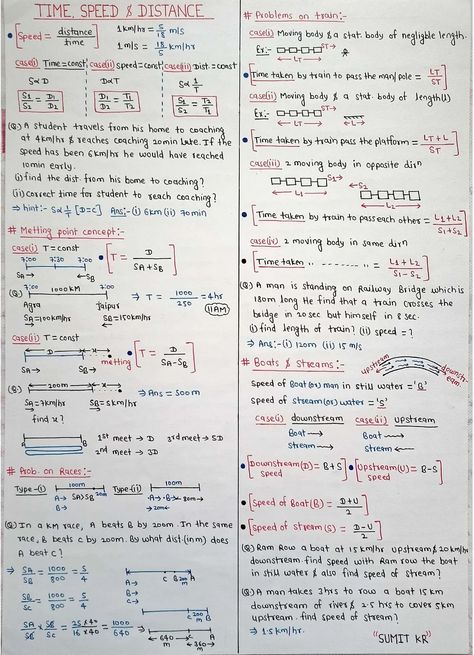 TIME, SPEED & DISTANCE
• [Speed = distance/time]
1 km/hr = 5/18 m/s
1 m/s = 18/5 km/hr
case(i) Time=const
case(ii) speed=const
case(iii) Dist.=const
S∝D
D∝T
S∝1/T
S1/S2 = D1/D2
D1/D2 = T1/T2
S1/S2 = T2/T1
(Q) A student travels from his home to coaching
at 4km/hr & reaches coaching 20min late. If the
speed has been 6km/hr he would have reached
10min early.
(i) find the dist. from his home to coaching?
(ii) correct time for student to reach coaching?
⇒ hint:- S∝1/T [D=C] Ans:- (i) 6km (ii) 70min
# Metting point concept:-
case(i) T = const
7:00 7:30 7:00
D
SA→ ←SB
• [T = D/SA+SB]
(Q) 7:00 1000KM 7:00
Agra Jaipur
SA=100km/hr SB=150km/hr
⇒ T = 1000/250 = 4hr
(11AM)
case(ii) T = const
D x
SA→ SB→ metting
• [T = D/SA-SB]
(Q) 200m x
A B
SA=7km/hr SB=5km/hr
find x?
⇒ Ans = 500m
A B
1st meet → D 3rd meet → 5D
2nd meet → 3D
# Prob. on Races:-
Type-(i) 100m
A→ SA>SB 20m
B→
Type-(ii) 100m
•A→•B←x→80m→
←20m→
(Q) In a km race, A beats B by 200m. In the same
race, B beats C by 200m. By what dist.(in m) does
A beat C?
⇒ SA/SB = 1000/800 = 5/4
SB/SC = 1000/800 = 5/4
SA/SB × SB/SC = 25×40/16×40 = 1000/640
C B 200m A
C 200m B
640 C 360m A
# Problems on train:-
case(i) Moving body & a stat. body of negligble length.
Ex:- ST→
LT
•[Time taken by train to pass the man/pole = LT/ST]
case(ii) Moving body & a stat. body of length(L)
Ex:- ST→
LT L
•[Time taken by train pass the platform = LT+L/ST]
case(iii) 2 moving body in opposite dirn
S1→
L1
←S2
L2
•[Time taken by train to pass each other = L1+L2/S1+S2]
case(iv) 2 moving body in same dirn
•[Time taken ,, ---------- ,, = L1+L2/S1-S2]
(Q) A man is standing on Railway Bridge which is
180m long. He find that a train crosses the
bridge in 20sec but himself in 8 sec.
(i) find length of train? (ii) speed=?
⇒ Ans:- (i) 120m (ii) 15 m/s
# Boats & Streams:-
upstream
downstream
speed of Boat(or) man in still water = 'B'
speed of stream(or) water = 'S'
case(i) downstream
case(ii) upstream
Boat→
Boat→
Stream→
←Stream
•[Downstream(D)= B+S]
•[Upstream(U)= B-S]
•[Speed of Boat(B) = D+U/2]
•[Speed of stream(S) = D-U/2]
(Q) Ram Row a boat at 15km/hr upstream & 20km/hr
downstream. find speed with Ram row the boat
in still water & also find speed of stream?
(Q) A man takes 3hrs to row a boat 15km
downstream of river & 2.5 hrs to cover 5km
upstream. find speed of stream?
⇒ 1.5km/hr.
"SUMIT KR"